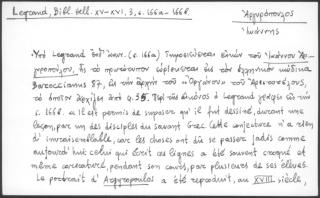 Legrand, Bibl. hell. XV-XVI, 3, σ. 166α-166β.
Ἀργυρόπουλος
Ἰωάννης
Ὑπὸ Legrand ἔνθ' ἀνωτ. (σ. 166α) δημοσιεύεται εἰκὼν τοῦ Ἰωάννου Ἀρ-
γυροπούλου, ἧς τὸ πρωτότυπον εὑρίσκεται εἰς τὸν ἑλληνικὸν κώδικα
Baroccianus 87, εἰς τὴν ἀρχὴν τοῦ «Ὀργάνου» τοῦ Ἀριστοτέλους,
τὸ ὁποῖον ἀρχίζει ἀπὸ φ. 35. Περὶ τῆς εἰκόνος ὁ Legrand γράφει εἰς τὴν
σ. 166β. «il est permis de supposer qu'il fut dessiné, durant une
leçon, par un des disciples du savant Grec. Cette conjecture n'a rien
d'invraisemblable, car les choses ont dû se passer jadis comme
aujourd'hui: celui qui écrit ces lignes a été souvent croqué et
même caricaturé, pendant son cours, par plusieurs de ses élèves.
Le portrait d'Argyropoulos a été reproduit, au XVIII siècle,